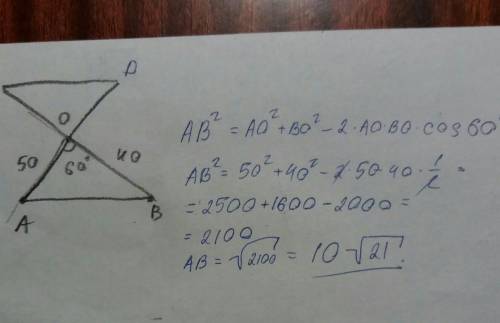 D
O
50 60° 40
A B
AB² = AO² + BO² - 2 · AO · BO · cos 60°
AB² = 50² + 40² - 2 · 50 · 40 · 1/2 =
= 2500 + 1600 - 2000 =
= 2100
AB = √2100 = 10√21.